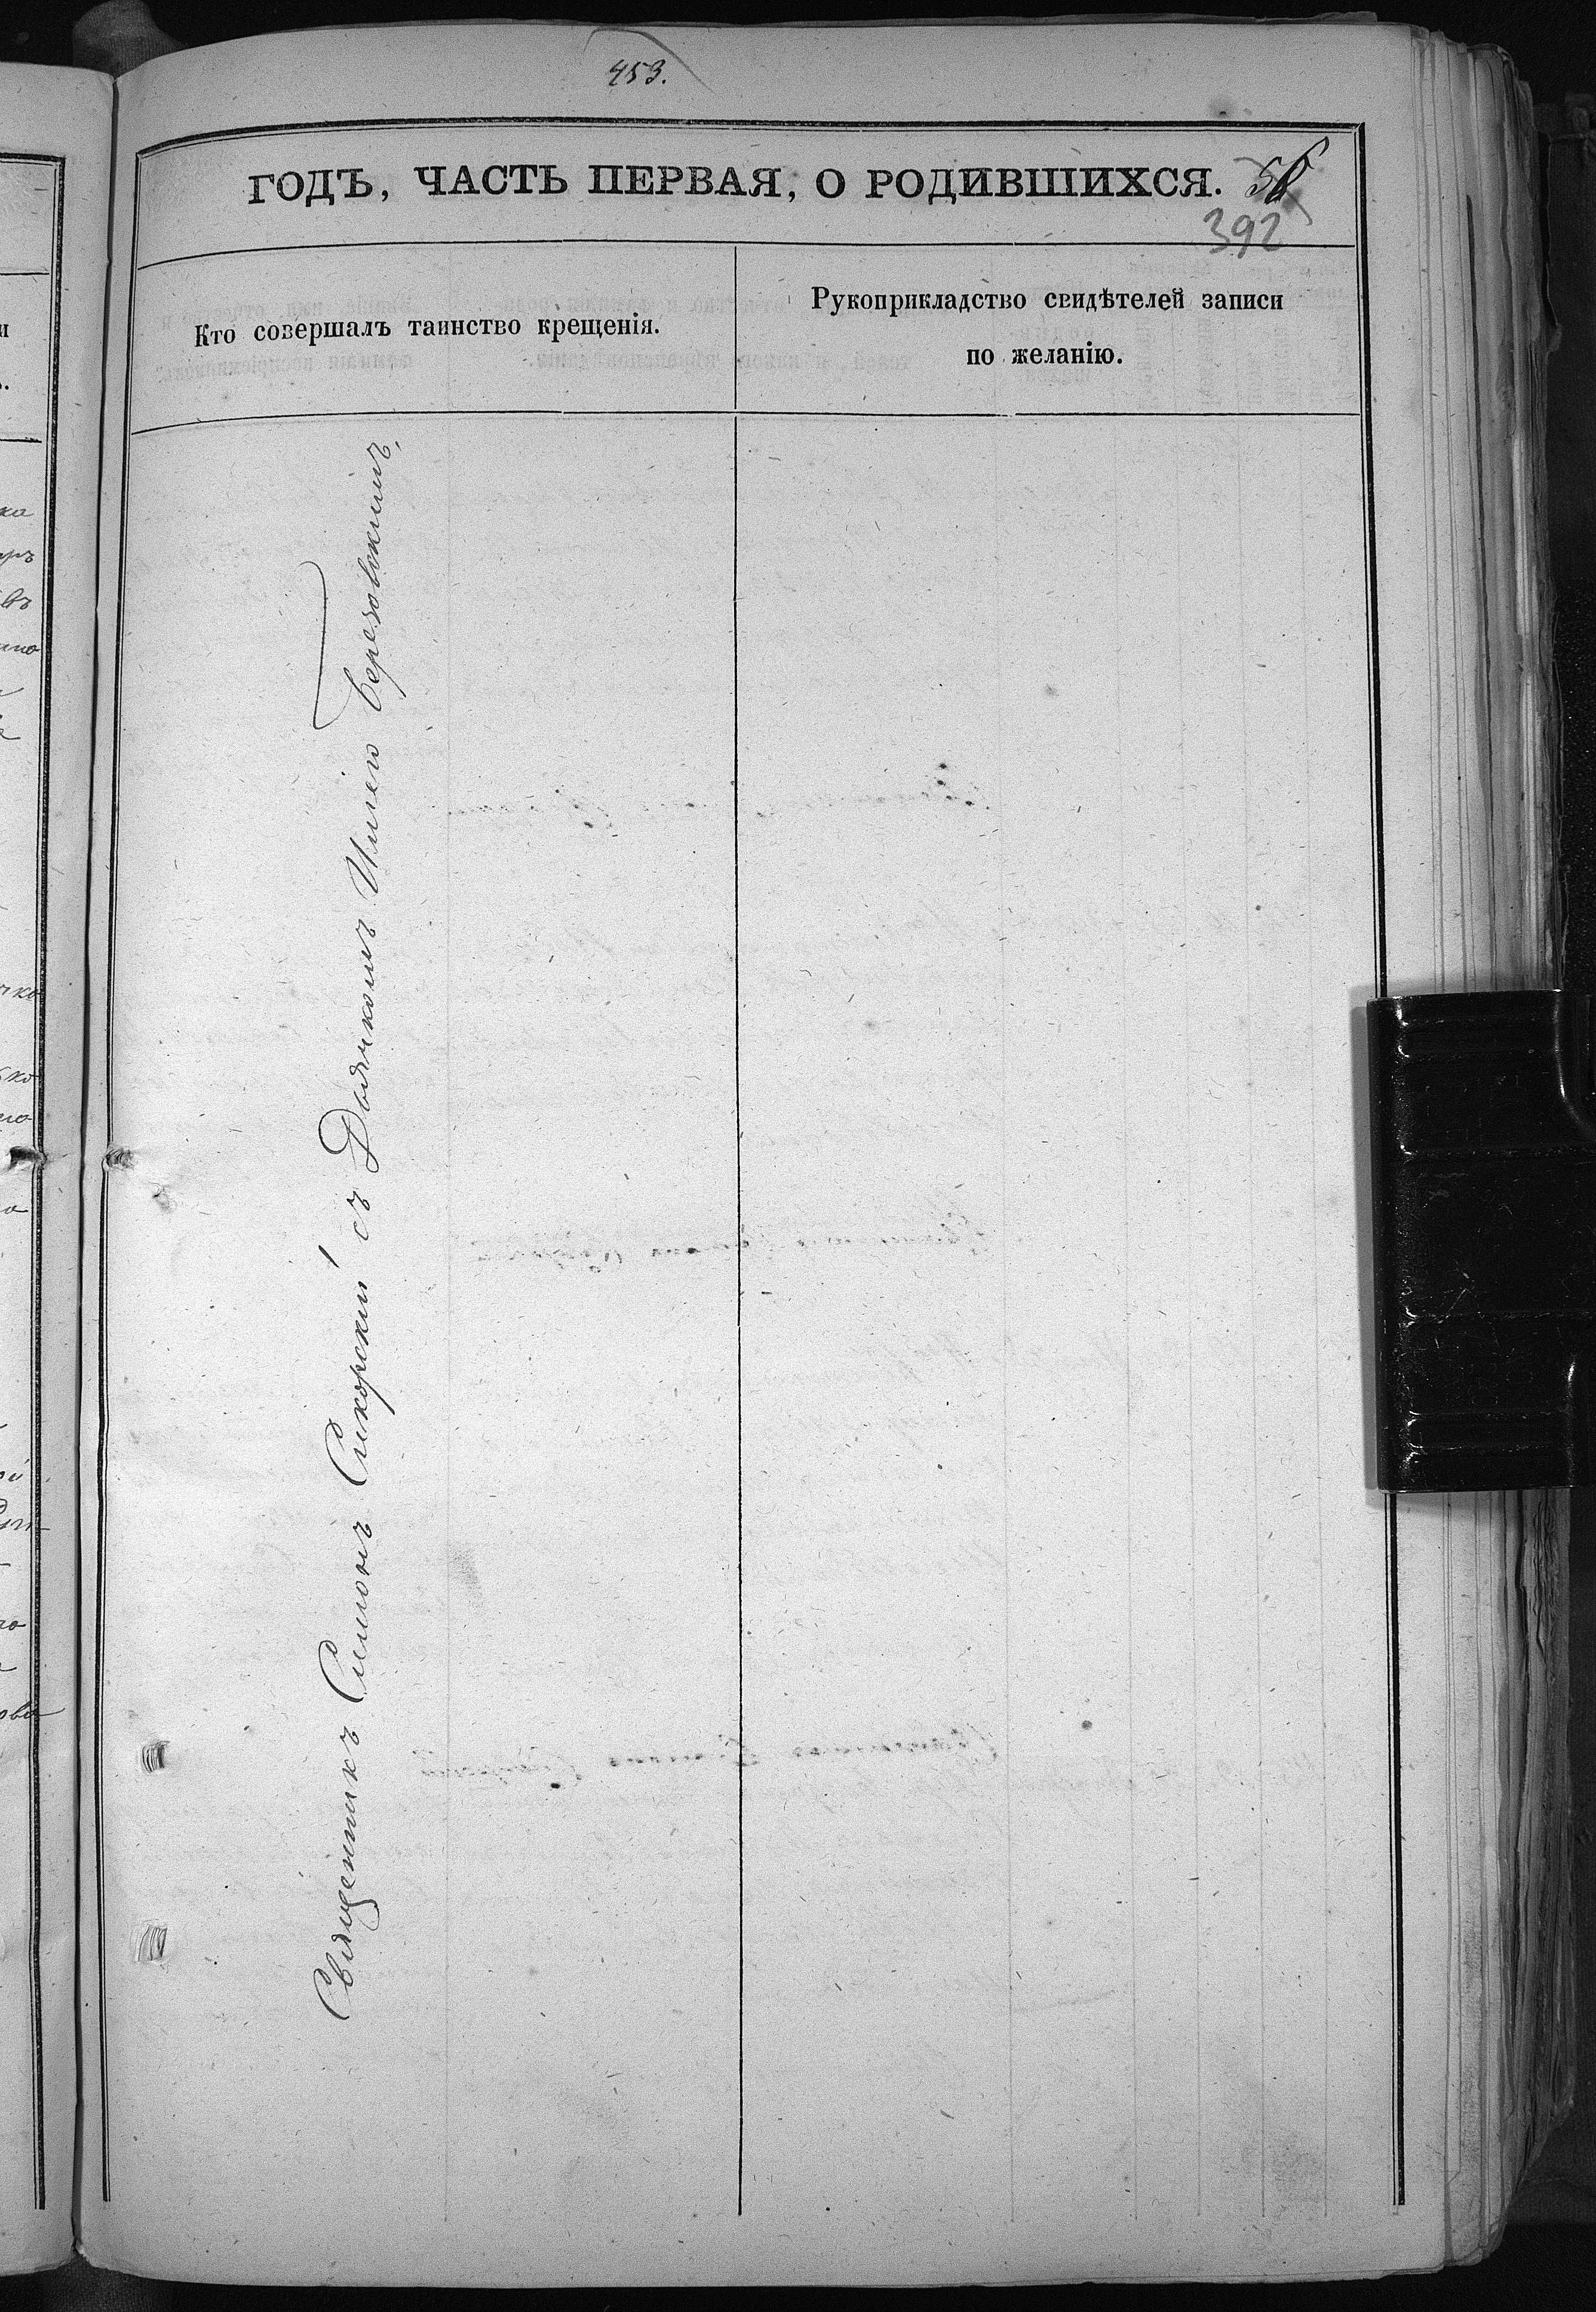 453.
ГОДЪ, ЧАСТЬ ПЕРВАЯ, О РОДИВШИХСЯ.
392
Кто совершалъ таинство крещенія.
Рукоприкладство свидѣтелей записи
по желанію.
Священникъ Симонъ Сикорскій съ Дьячкомъ Иліею Березовскимъ,